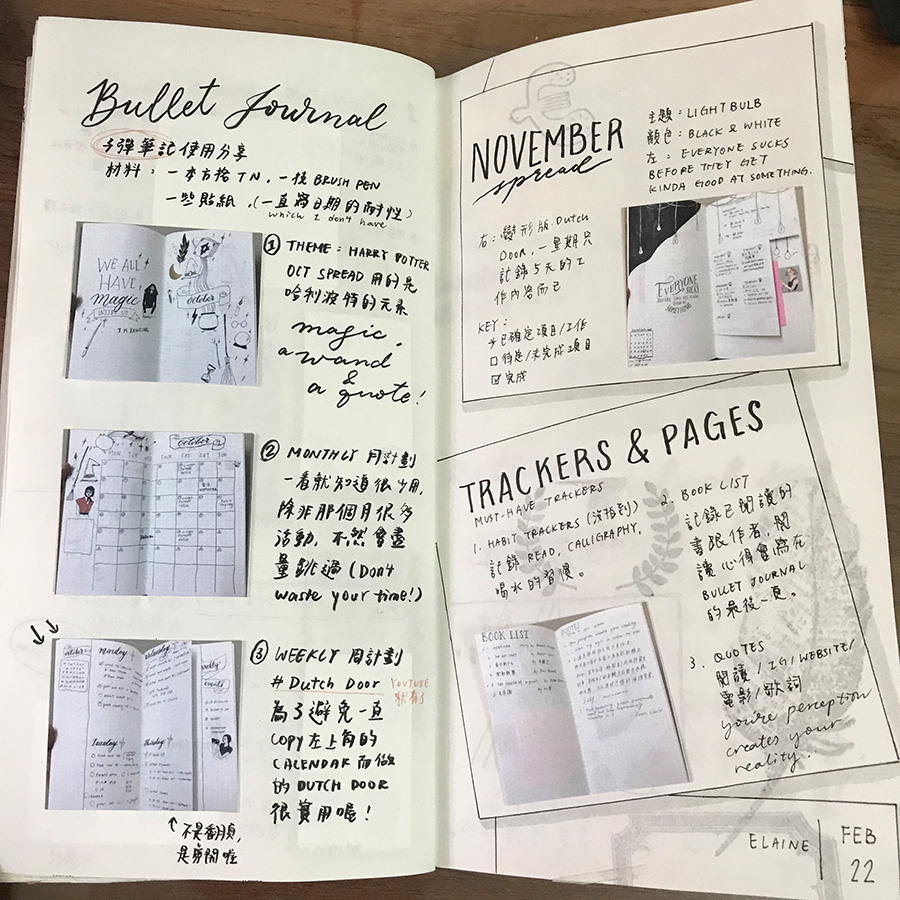 Bullet Journal
子彈筆記使用分享
材料：一本方格TN，一枝 BRUSH PEN
一些貼紙，(一直寫日期的耐性)
which I don't have
① THEME : HARRY POTTER
OCT SPREAD 用的是
哈利波特的元素
magic,
a wand
&
a quote!
WE ALL
HAVE
Magic
INSIDE US
J.K. ROWLING
October
② MONTHLY 月計劃
一看就知道很少用，
除非那個月很多
活動，不然會盡
量跳過 (Don't
waste your time!)
October
MON TUE
THU FRI SAT SUN
③ WEEKLY 周計劃
# Dutch Door
YOUTUBE
就有了
為了避免一直
COPY 左上角的
CALENDAR 而做
的 DUTCH DOOR
很實用喔！
October
Monday
Wednesday
Tuesday
Thursday
Weekly
不是翻頁，
是剪開啦
NOVEMBER
spread
主題：LIGHT BULB
顏色：BLACK & WHITE
左：EVERYONE SUCKS
BEFORE THEY GET
KINDA GOOD AT SOMETHING.
右：變形版 Dutch
Door，一星期只
記錄5天的工
作內容而已
KEY:
已確定項目/工作
□ 待定/未完成項目
☑ 完成
EVERYONE
SUCKS
SOMETHING
TRACKERS & PAGES
MUST-HAVE TRACKERS
1. HABIT TRACKERS (沒拍到)
記錄 READ, CALLIGRAPHY,
喝水的習慣。
2. BOOK LIST
記錄已閱讀的
書跟作者，閱
讀心得會寫在
BULLET JOURNAL
的最後一頁。
BOOK LIST
QUOTES
3. QUOTES
閱讀/IG/WEBSITE/
電影/歌詞
you're perception
creates your
reality.
ELAINE
FEB
22